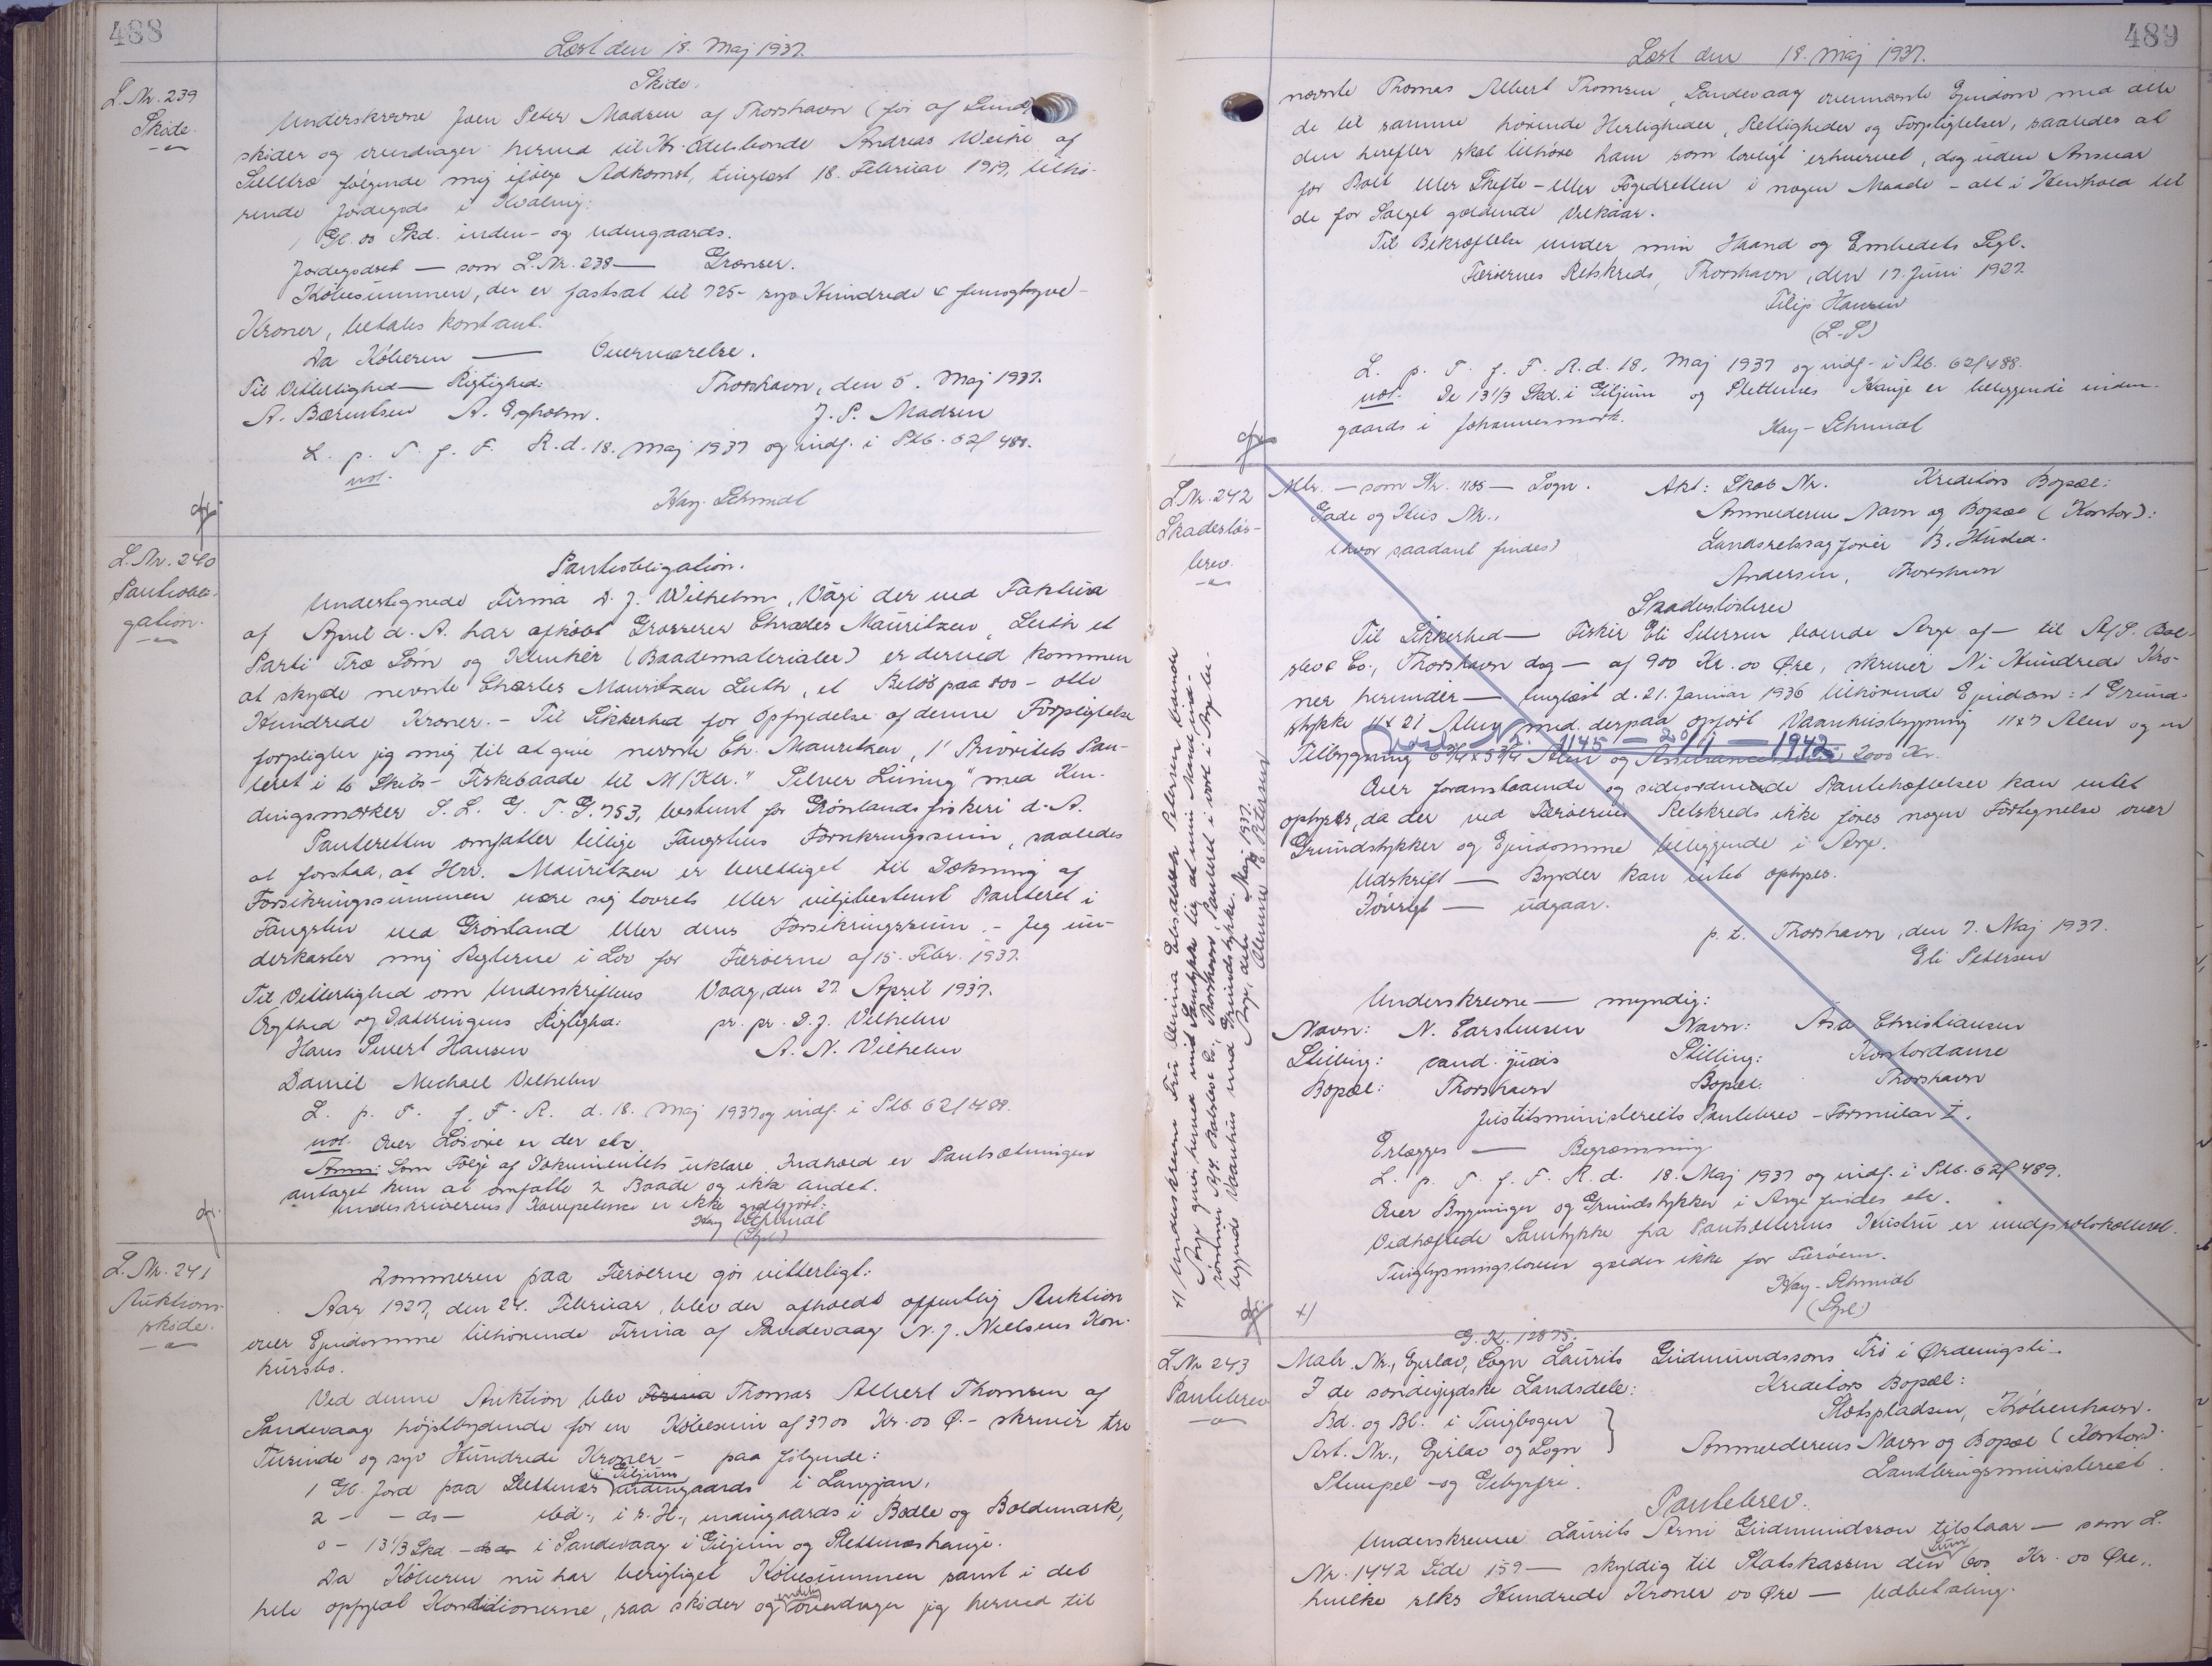 488
Læst den 18. Maj 1937.
L. Nr. 239
Skøde.
Skøde.
Underskrevne Joen Peter Madsen af Thorshavn (før af Sund)
skøder og overdrager herved til Kr. Odelsbonde Andreas Weihe af
Selletræ følgende mig ifølge Adkomst, tinglæst 18. Februar 1919, tilhø-
rende Jordegods i Kvalvig:
1 Gl. 00 Skd. inden- og udengaards.
Jordegodset — som L. Nr. 238 — Grænser.
Købesummen, der er fastsat til 725- syv Hundrede & femogtyve-
Kroner, betales kontant.
Da Køberen — Overværelse.
Til Vitterlighed — Rigtighed: Thorshavn, den 5. Maj 1937.
A. Bærentsen A. Egholm. J. P. Madsen
L. p. T. f. F. R. d. 18. Maj 1937 og indf. i Ptb. 62/488.
not.
Kay-Schmidt
L. Nr. 240
Pantiobli-
gation.
Pantiobligation.
Undertegnede Firma D. J. Wilhelm, Vági der ved Faktura
af April d. A. har afkøbt Grosserer Charles Mauritzen, Leith et
Parti Træ Søm og Klinker (Baadematerialer) er derved kommen
at skyde nevnte Charles Mauritzen Leith, et Beløb paa 800 - otte
Hundrede Kroner. - Til Sikkerhed for Opfyldelse af denne Forpligtelse
forpligter jeg mig til at give nevnte Ch. Mauritzen, 1' Prioritets Pan-
teret i 6 Skibs- Fiskebaade til M/Ktr. "Silver Lining" med Ken-
dingsmærker S. L. G. T. G. 753, bestemt for Grønlandsfiskeri d. A.
Panteretten omfatter tillige Fangstens Forsikringssum, saaledes
at forstaa, at Hrr. Mauritzen er berettiget til Dækning af
Forsikringssummen være sig lovrets eller viljebestemt Panteret i
Fangsten ved Grønland eller dens Forsikringssum. - Jeg un-
derkaster mig Reglerne i Lov for Færøerne af 15. Febr. 1937.
Til Vitterlighed om Underskriftens Vaag, den 27. April 1937.
Ægthed og Dateringens Rigtighed: pr. pr. D. J. Vilhelm
Hans Sivert Hansen A. N. Vilhelm
Daniel Michael Vilhelm
L. p. T. f. F. R. d. 18. Maj 1937 og indf. i Ptb. 62/488.
not. Over Løsøre er der etc.
Anm: Som Følge af Dokumentets uklare Indhold er Pantsætningen
antaget kun at omfatte 2 Baade og ikke andet.
Underskriverens Kompetence er ikke godtgjort:
Kay Schmidt
(Spl.)
L. Nr. 241
Auktions-
skøde.
Dommeren paa Færøerne gør vitterligt:
Aar 1927, den 24. Februar, blev der afholdt offentlig Auktion
over Ejendomme tilhørende Firma af Sandevaag N. J. Nielsens Kon-
kursbo.
Ved denne Auktion blev Firma Thomas Albert Thomsen af
Sandevaag højstbydende for en Købesum af 3700 Kr. 00 Ø. - skriver tre
Tusinde og syv Hundrede Kroner - paa følgende:
i Giljum
1 Gl. Jord paa Slettenæs indengaards i Langjan,
2 - - ds - ibid., i s. H., indengaards i Bødle og Boldemark,
0 - 13 1/3 Skd. - ds i Sandevaag i Giljum og Slettenæshauje.
Da Køberen nu har berigtiget Købesummen samt i det
hele opfyldt Konditionerne, saa skøder og endelig overdrager jeg herved til
489
Læst den 18. Maj 1937.
nævnte Thomas Albert Thomsen, Sandevaag ovennævnte Ejendom med alle
de til samme hørende Herligheder, Rettigheder og Forpligtelser, saaledes at
den herefter skal tilhøre ham som lovligt erhvervet, dog uden Ansvar
for Boet eller Skifte- eller Fogedretten i nogen Maade - alt i Henhold til
de for Salget gældende Vilkaar.
Til Bekræftelse under min Haand og Embedets Segl.
Færøernes Retskreds, Thorshavn, den 17. Juni 1927.
Filip Hansen
(L. S.)
L. p. T. f. F. R. d. 18. Maj 1937 og indf. i Ptb. 62/488.
not. De 13 1/3 Skd. i Giljum og Slettenes Hauje er beliggende inden-
gaards i Johannesmørk.
Kay-Schmidt
L. Nr. 242
Skadesløs-
brev.
Mtr. — som Nr. 1185 — Sogn. Akt: Skab Nr. Kreditors Bopæl:
Gade og Hus Nr., Anmelderen Navn og Bopæl (Kontor):
(hvor saadant findes) Landsretssagfører B. Husted-
Andersen, Thorshavn
Skadesløsbrev
Til Sikkerhed — Fisker Eli Petersen boende Arge af — til A/S. Bal-
slev & Co., Thorshavn dog — af 900 Kr. 00 Øre, skriver Ni Hundrede Kro-
ner herunder — tinglæst d. 21. Januar 1936 tilhørende Ejendom: 1 Grund-
stykke 11 x 21 Alen med derpaa opført Vaanhusbygning 11 x 7 Alen og en
1145 — 20/11 — 1942
Tilbygning 6 3/4 x 5 3/4 Alen og Assurance 2000 Kr.
Over foranstaaende og sideordnede Pantehæftelser kan intet
oplyses, da der ved Færøernes Retskreds ikke føres nogen Fortegnelse over
Grundstykker og Ejendomme beliggende i Arge.
Udskrift — Byrder kan intet oplyses.
Iøvrigt — udgaar.
p. t. Thorshavn, den 7. Maj 1937.
Eli Petersen
Underskrevne — myndig:
Navn: N. Carstensen Navn: Ása Christiansen
Stilling: cand. juris Stilling: Kontordame
Bopæl: Thorshavn Bopæl: Thorshavn
Justitsministeriets Pantebrev - Formular I.
Erlægges — Begrænsning
L. p. T. f. F. R. d. 18. Maj 1937 og indf. i Ptb. 62/489.
Over Bygninger og Grundstykker i Arge findes etc.
Vedhæftede Samtykke fra Pantsætterens Hustru er medprotokolleret.
Tinglysningsloven gælder ikke for Færøern.
Kay-Schmidt
(Spl.)
+/
+/ Underskrevne Fru Olevina Elisabeth Petersen boende
Arge giver herved mit Samtykke til, at min Mand ind-
rømmer A/S. Balslev & Co., Thorshavn, Panteret i vort i Arge be-
liggende Vaanhus med Grundstykke.
Arge, den Maj 1937.
Olevine E. Petersen
L. Nr. 243
Pantebrev
G. K. 12875.
Matr. Nr., Ejerlav, Sogn Laurits Gudmundssons Trø i Ørdevigsli.
I de sønderjydske Landsdele: Kreditors Bopæl:
Bd. og Bl. i Tingbogen Slotspladsen, København.
Art. Nr., Ejerlav og Sogn Anmelderens Navn og Bopæl (Kontor):
Stempel- og Gebyrfri. Landbrugsministeriet.
Pantebrev.
Underskrevne Laurits Arni Gudmundsson tilstaar — som L.
Nr. 1442 Side 159 — skyldig til Statskassen den Sum 600 Kr. 00 Øre,
hvilke seks Hundrede Kroner 00 Øre — Udbetaling.